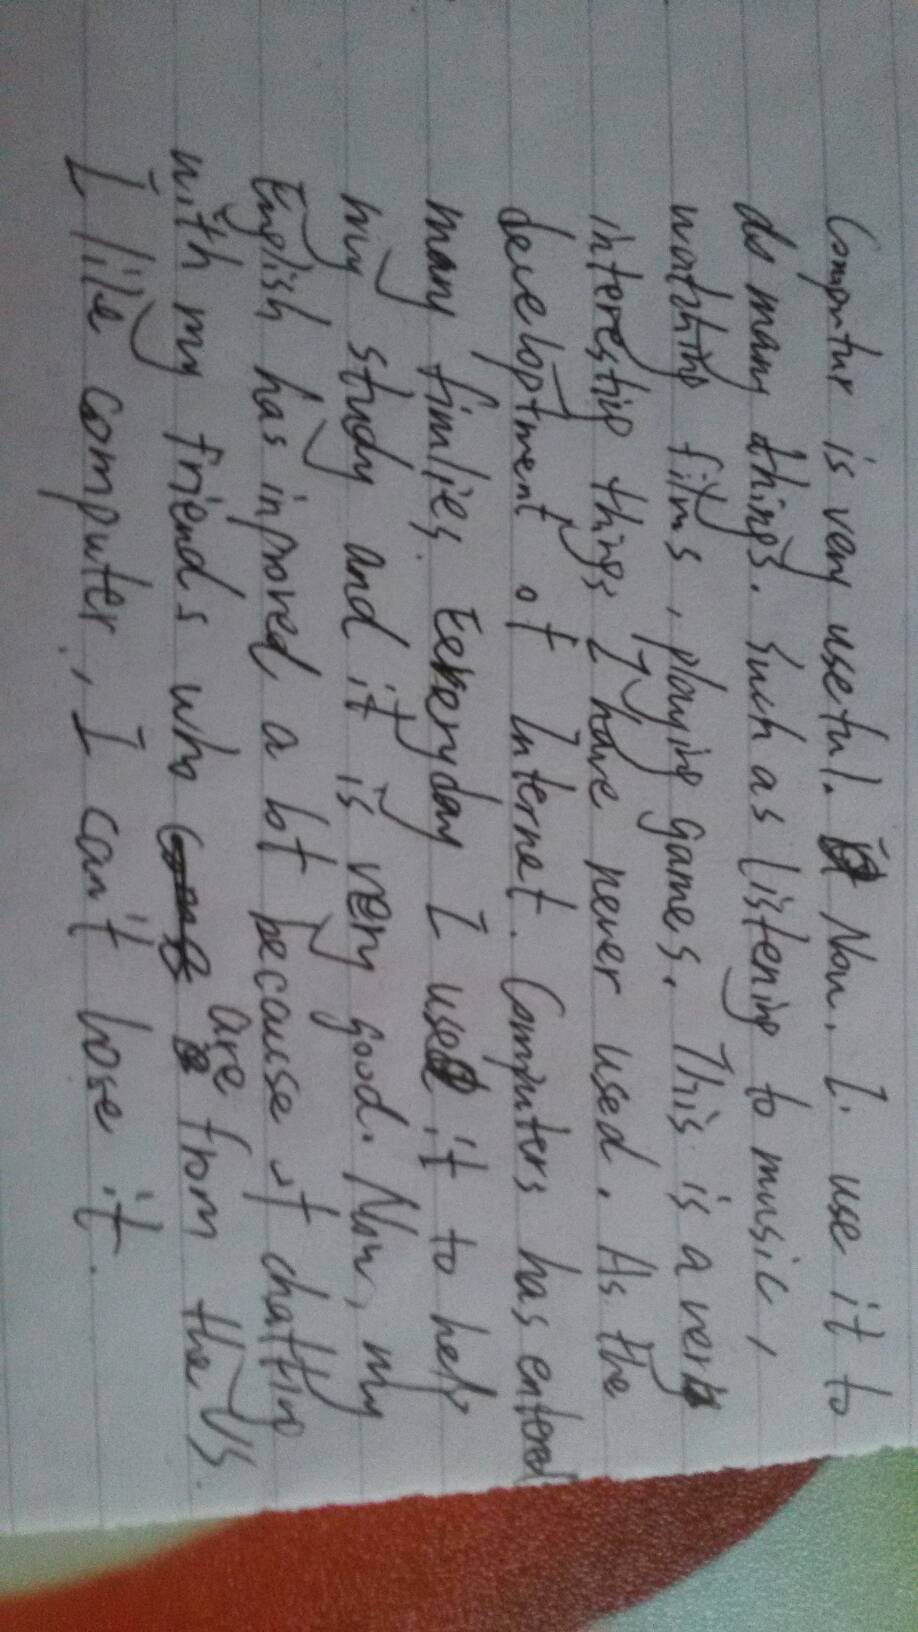 Computer is very useful. Now, I. use it to
do many things. Such as listening to music,
watching films, playing games. This is a very
interesting things I have never used. As the
developtment of Internet. Computers has entered
many fimlies. Eereryday I use it to help
my study and it is very good. Now, my
English has inproved a lot because of chatting
with my friends who are from the US.
I like computer, I can't lose it.